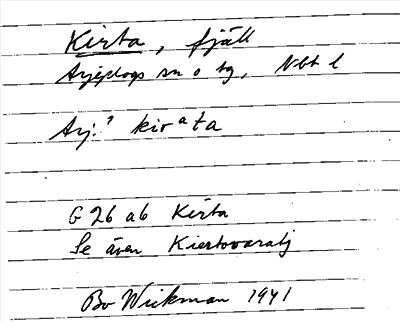 Kirta, fjäll
Arjeplogs sn o tg, Nbt l
Arj:? kirᵃta
G 26 ab Kirta
Se även Kiertovaratj
Bo Wickman 1941